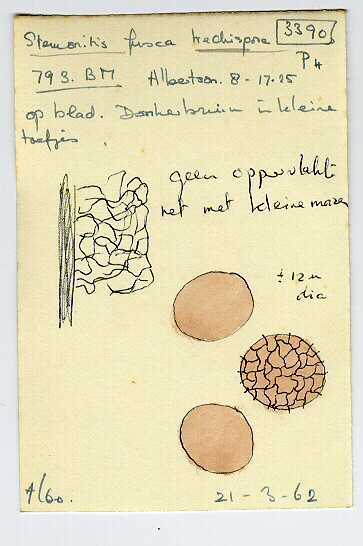 Stemonitis fusca trechispora 3390
P4
793. BM Albertson. 8-17.25
op blad. Donkerbruin in kleine
toefjes
geen oppervlakte
net met kleine mazen
± 12 u
dia
Albo. 21-3-62